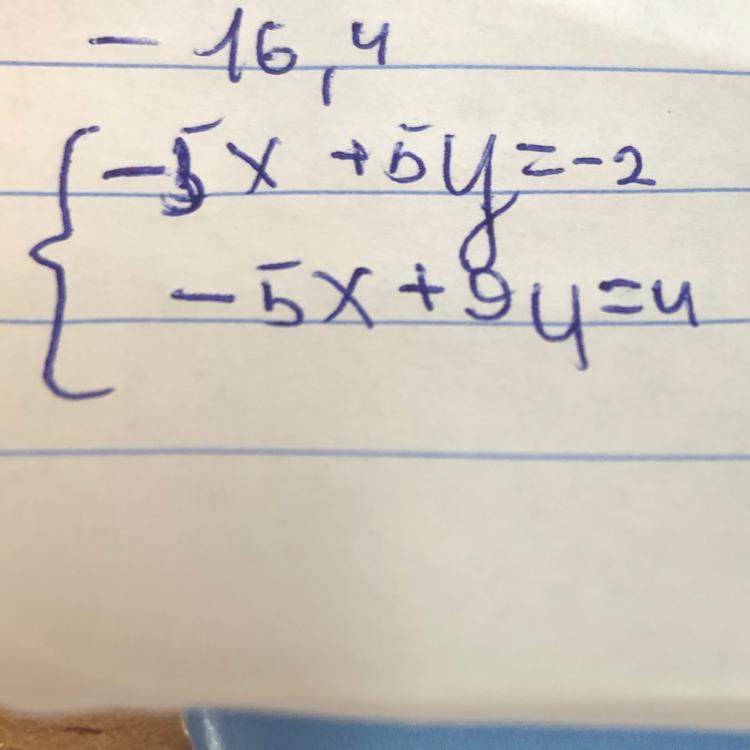 - 16,4
-5x +5y=-2
-5x+9y=4